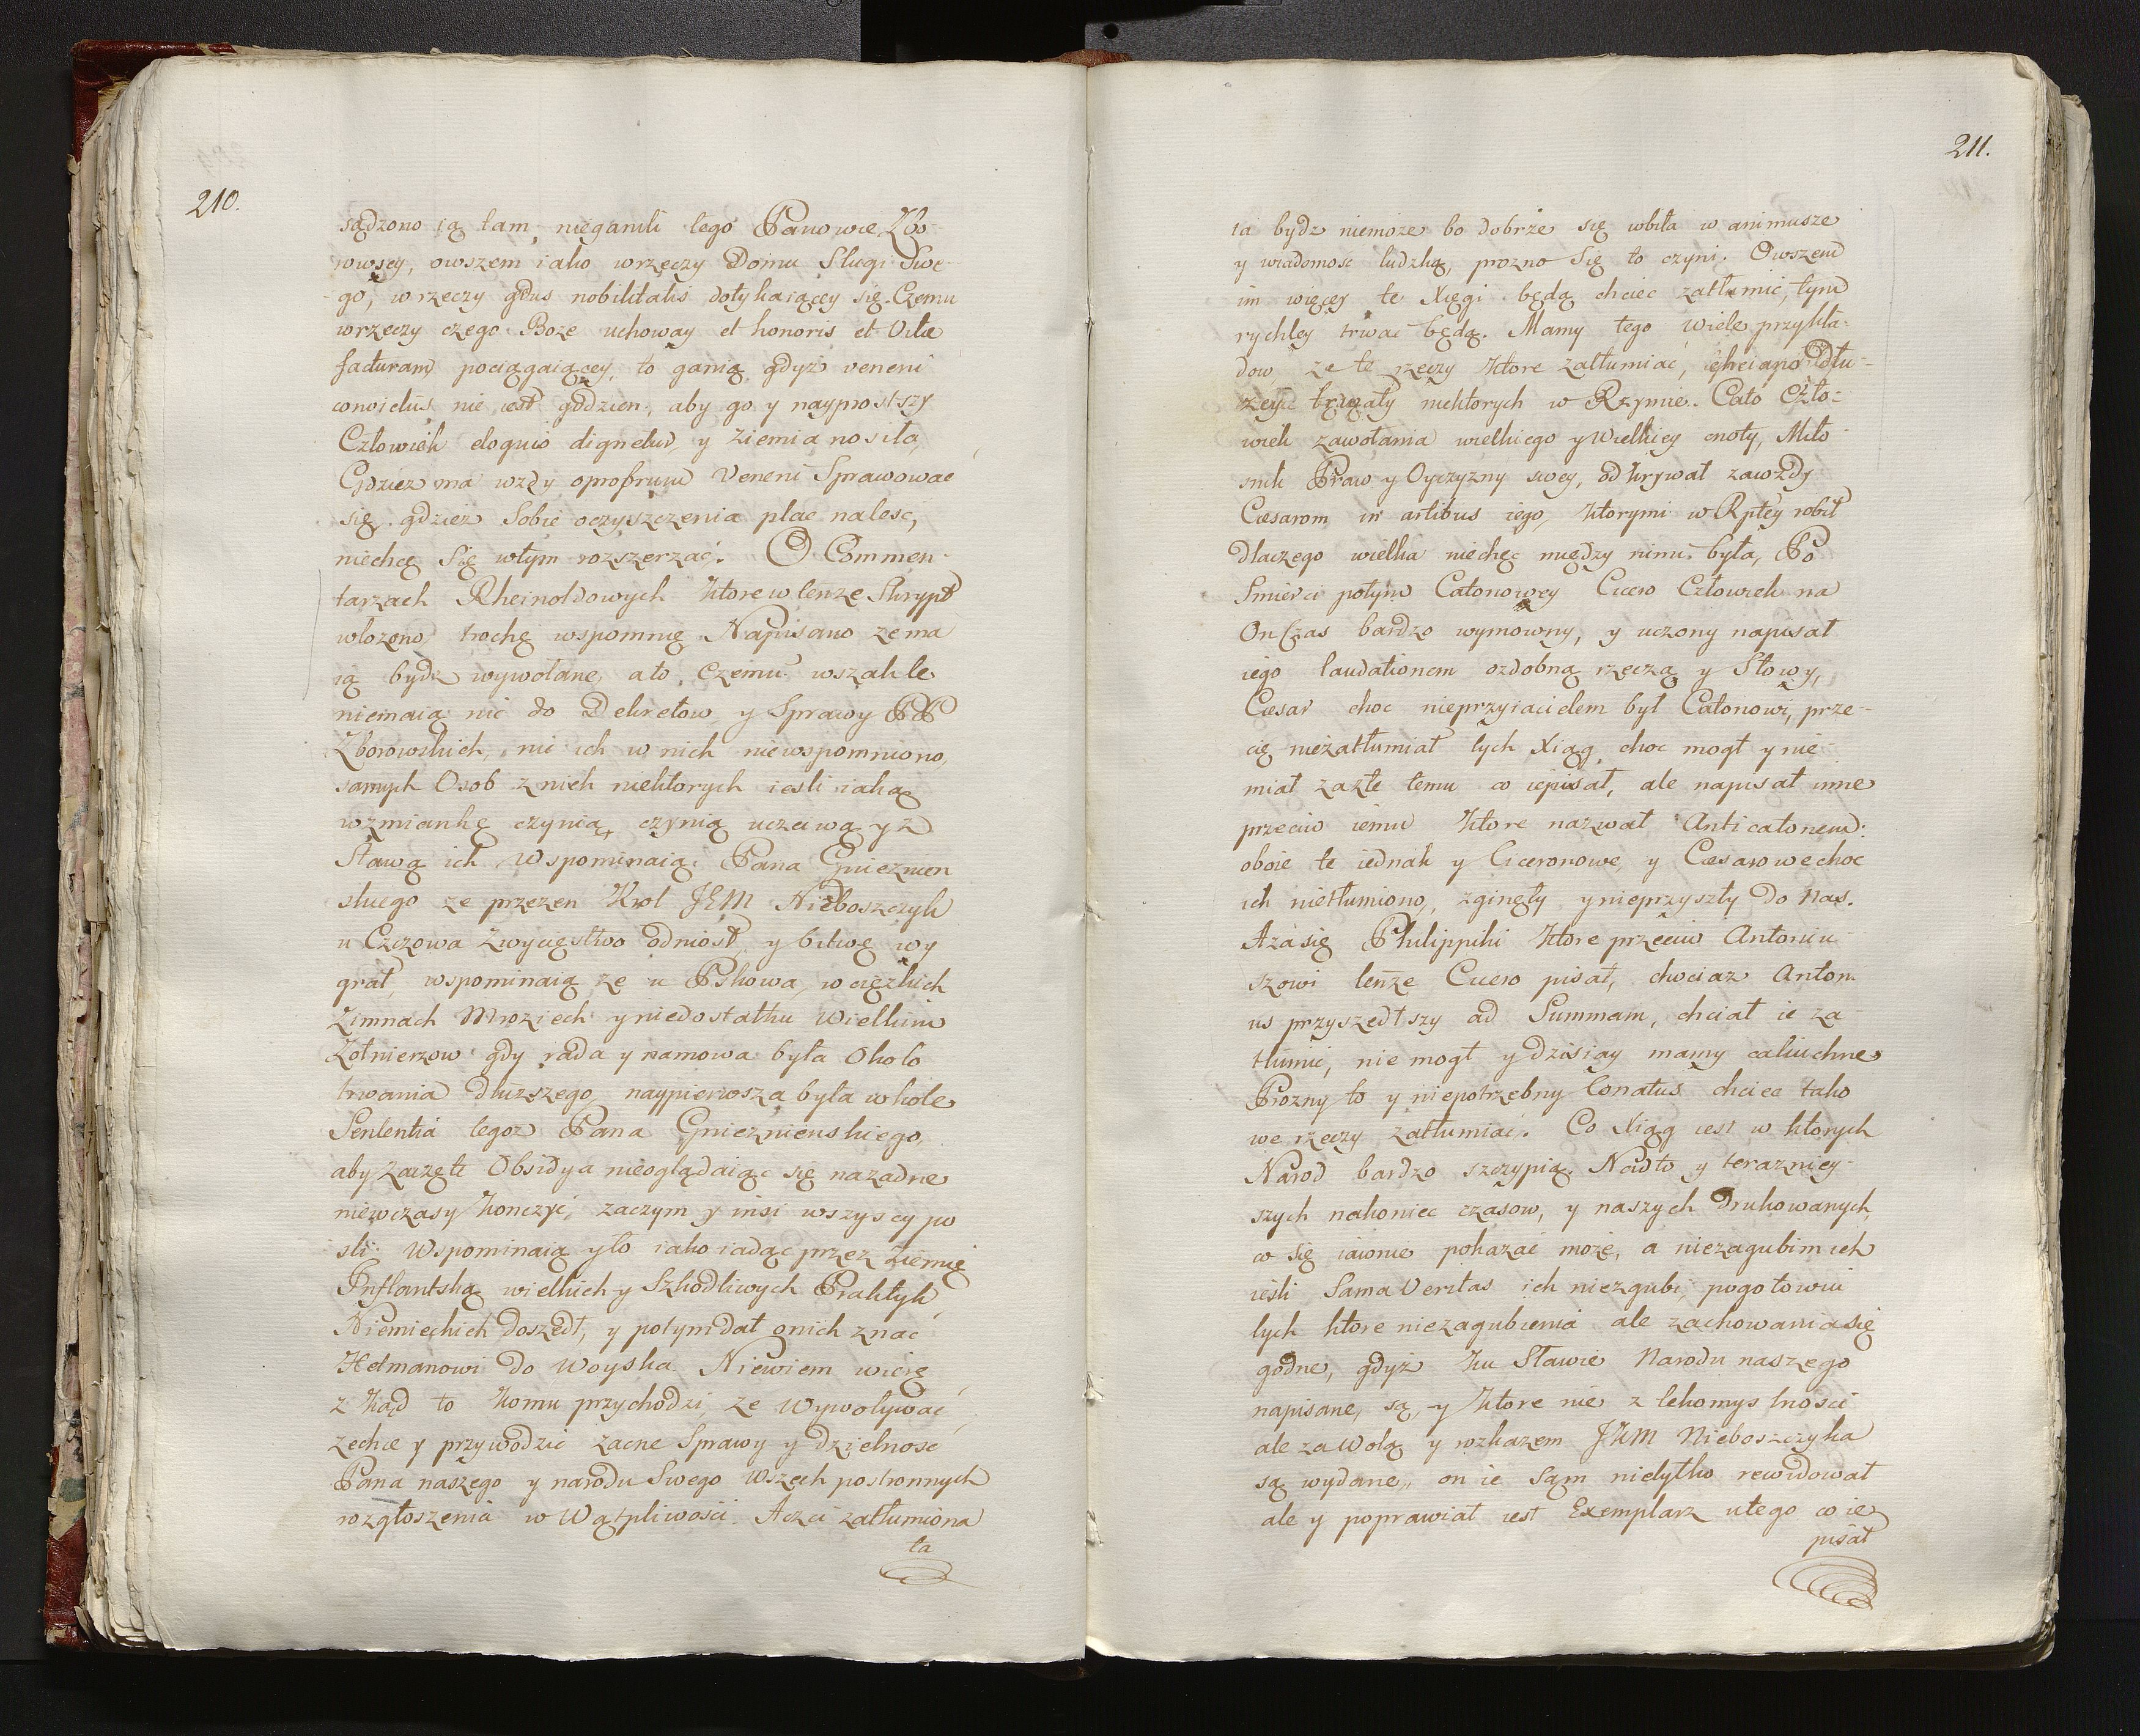 210.
sądzono ią tam, nieganili tego Panowie Zbo-
rowscy, owszem iako wrzeczy Domu Sługi Swe-
go, w rzeczy gdus nobilitatis dotykaiącey się. Czemu
wrzeczy czego Boze uchoway et honoris et Vitæ
facturam pociągaiącey, to ganią, gdyż veneni
convictus nie iest godzien, aby go y nayprostszy
Człowiek eloquio dignetur, y ziemia nosiła,
Gdzież ma wzdy oprobrium Veneni Sprawowac
się, gdzież Sobie oczyszczenia plac nalesc,
niechcę Się wtym rozszerzać. O Commen-
tarzach Rheinoldowych ktore w tenze Skrypt
włozono, trochę wspomnię. Napisano ze ma
ią bydz wywołane, a to czemu? wszak te
niemaią nic do Dekretow y Sprawy PP
Zborowskich, nic ich w nich niewspomniono,
samych Osob z nich niektorych iesli iaką
wzmiankę czynią, czynią uczciwą y z
Sławą ich Wspominaią. Pana Gnieznien
skiego ze przezen Krol JEM Nieboszczyk
u Czczowa zwycięstwo odniosł, y bitwę wy
grał, wspominaią ze u Pskowa, w cięzkich
Zimnach Mroziech y niedostatku Wielkim
Zołnierzow gdy rada y namowa była Około
trwania dłuzszego, naypierwsza była w kole
Sententia tegoz Pana Gnieznienskiego,
aby zaczęte Obsidya nieoglądaiąc się nazadne
niewczasy konczyć, zaczym y insi wszyscy po
sli. Wspominaią y to iako iadąc przez Ziemię
Inflantską wielkich y Szkodliwych Praktyk
Niemieckich doszedł, y potym dał onich znac
Hetmanowi do Woyska. Niewiem więcę
z kąd to komu przychodzi, ze Wywoływać
zechce y przywodzic zacne Sprawy y dzielnosc
Pana naszego y narodu Swego Wszech postronnych
rozgłoszenia w Wątpliwości. Aczci zatłumiona
ta
211.
ta bydz niemoze bo dobrze się wbiła w animusze
y wiadomosc ludzką, prozno Się to czyni. Owszem
im więcey te Xięgi będą chciec zatłumić, tym
rychley trwac będą. Mamy tego wiele przykła-
dow, ze te rzeczy ktore zatłumiac, chciano Dłu-
zeyć trwały niektorych w Rzymie. Cato Czło-
wiek zawołania wielkiego y Wielkiey cnoty, Miło-
snik Praw y Oyczyzny swey, odkrywał zawżdy
Cæsarom in artibus iego, ktorymi w Rptey robił
dlaczego wielka niechęc między nimi była, Po
Smierci potym Catonowey Cicero Człowiek na
On Czas bardzo wymowny, y uczony napisał
iego laudationem ozdobną rzeczą y Słowy,
Cæsar choc nieprzyiacielem był Catonowi, prze-
cię niezatłumiał tych Xiąg choc mogł y nie
miał zazłe temu co iepisał, ale napisał inne
przeciw iemu ktore nazwał Anticatonem:
oboie te iednak y Ciceronowe, y Cæsarowe choc
ich nietłumiono, zginęły y nieprzyszły do nas.
Azasię Philippiki ktore przeciw Antoniu-
szowi tenze Cicero pisał, chociaz Anton
us przyszedłszy ad Summam, chciał ie za-
tłumić, nie mogł y dzisiay mamy caluchne
Prozny to y niepotrzebny Conatus chciec tako
we rzeczy zatłumiać. Co Xiąg iest w ktorych
Narod bardzo szczypią. Nadto y terazniey-
szych nakoniec czasow, y naszych drukowanych,
co się iawnie pokazać moze, a niezagubim ich
iesli Sama Veritas ich niezgubi, pogotowiu
tych ktore niezagubienia ale zachowania się
godne, gdyż ku Sławie Narodu naszego
napisane, są, y ktore nie z lekomyslnosci
ale za Wolą y rozkazem JKM Nieboszczyka
są wydane, on ie Sam nietylko rewidował
ale y poprawiał iest Exemplarz utego co ie
pisał